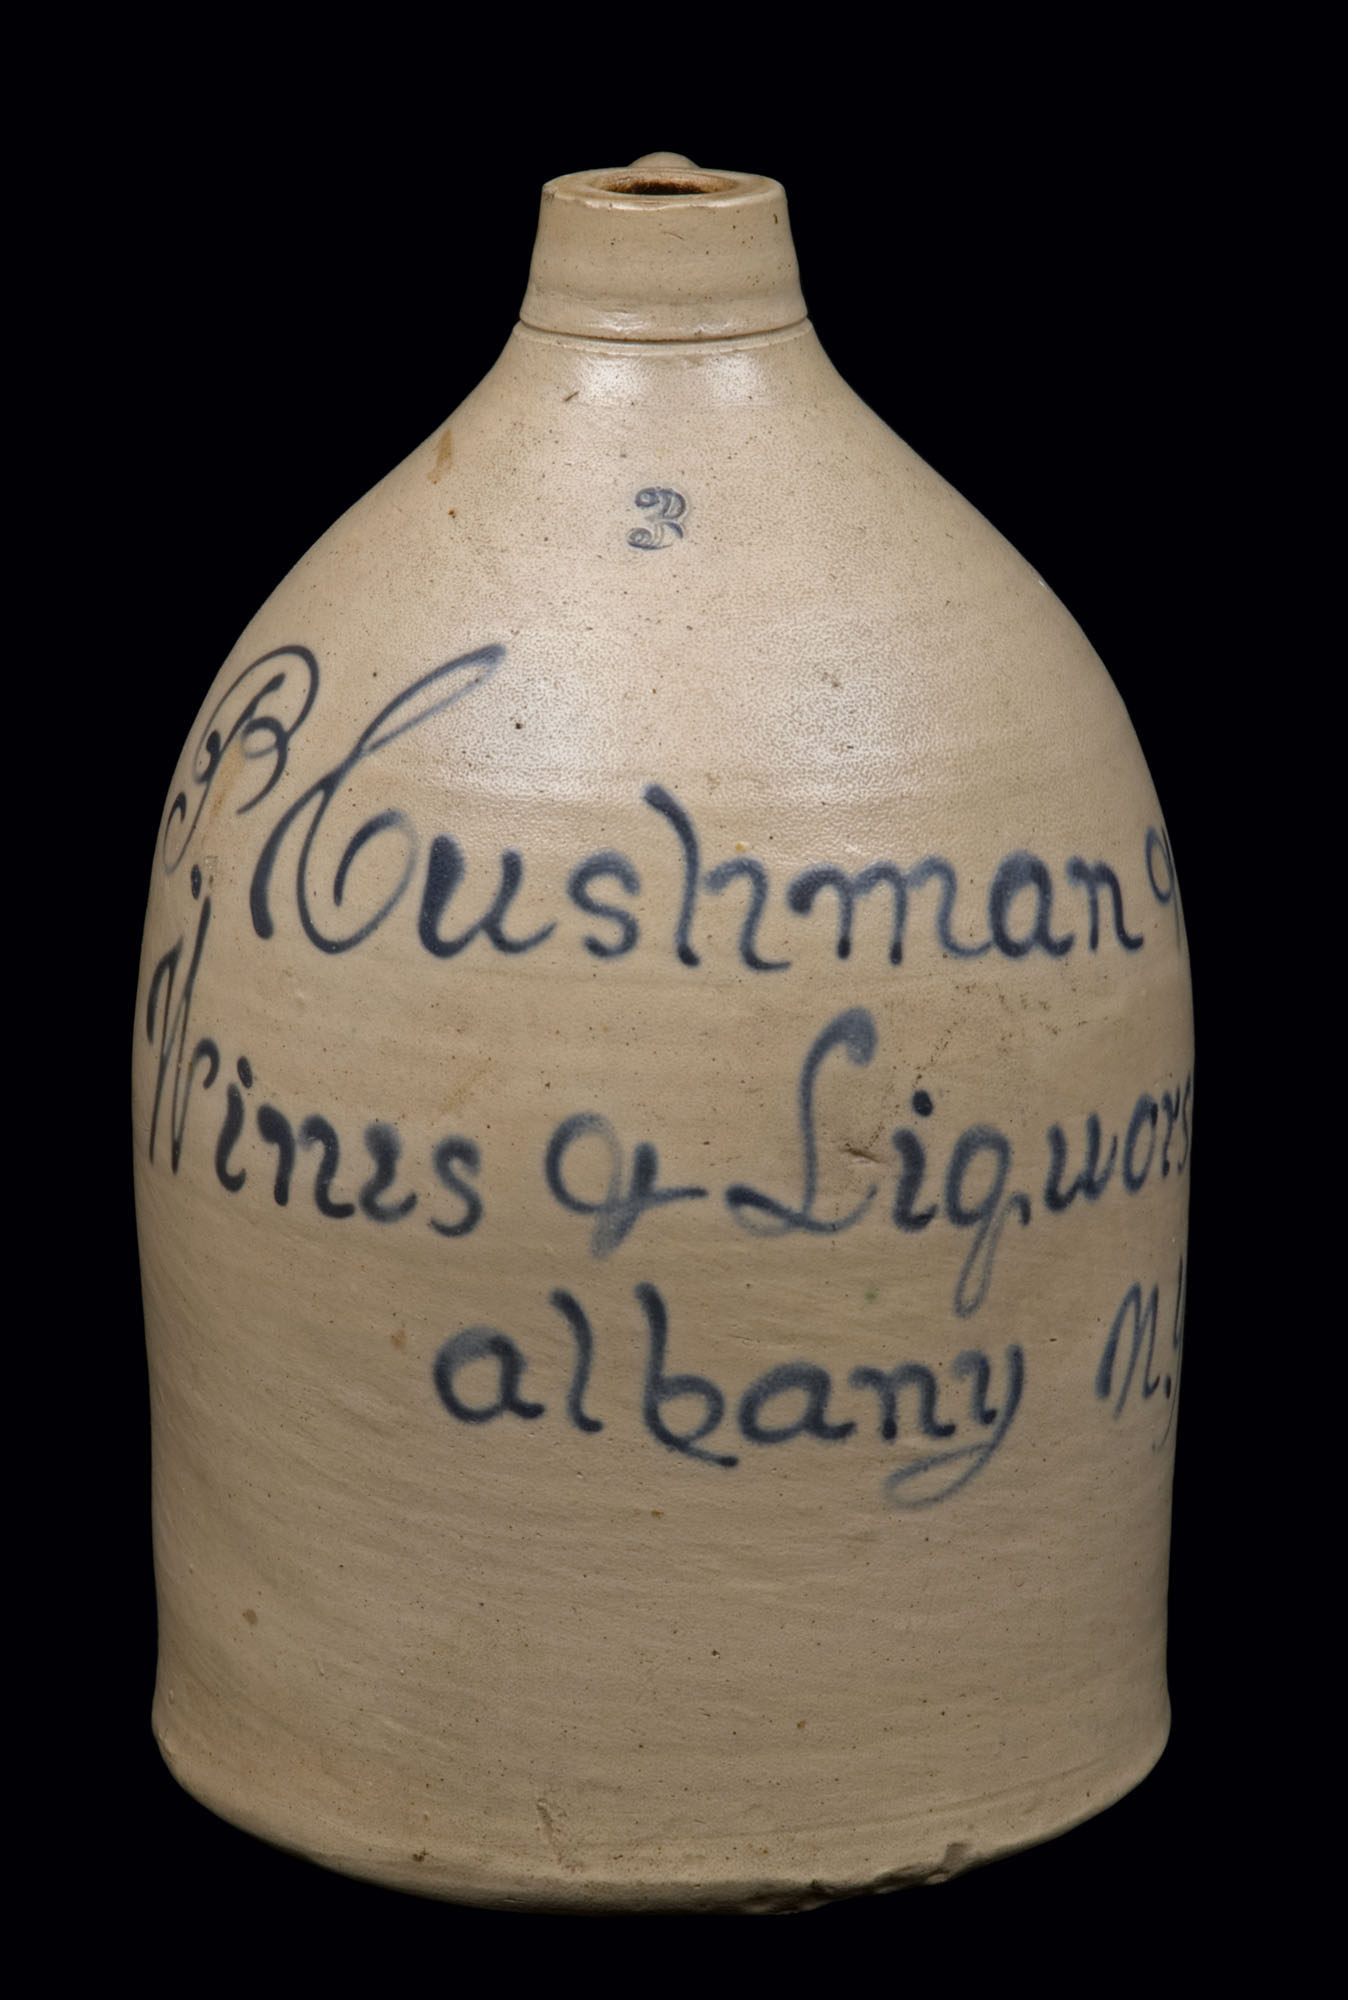 3
Cushman &
Wines & Liquors
albany N.Y